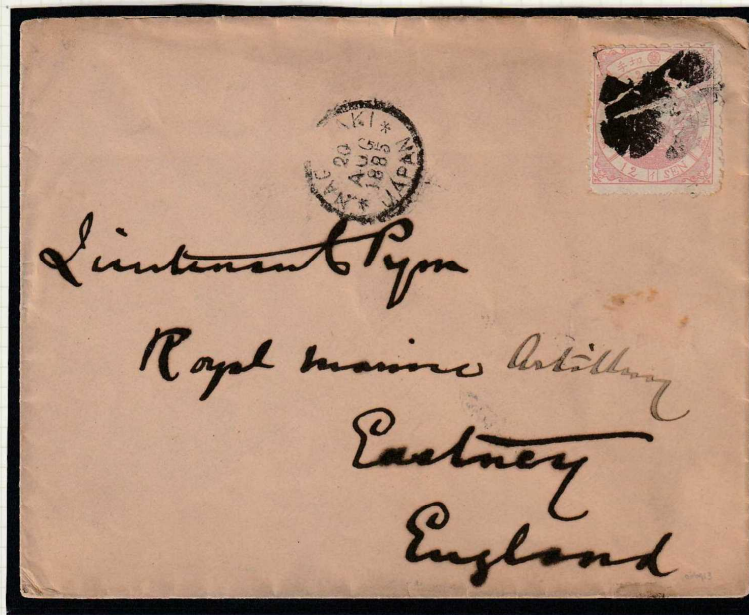 NAGASAKI * JAPAN *
20
AUG
1885
12 SEN
Lieutenant Pym
Royal Marine Artillery
Eastney
England